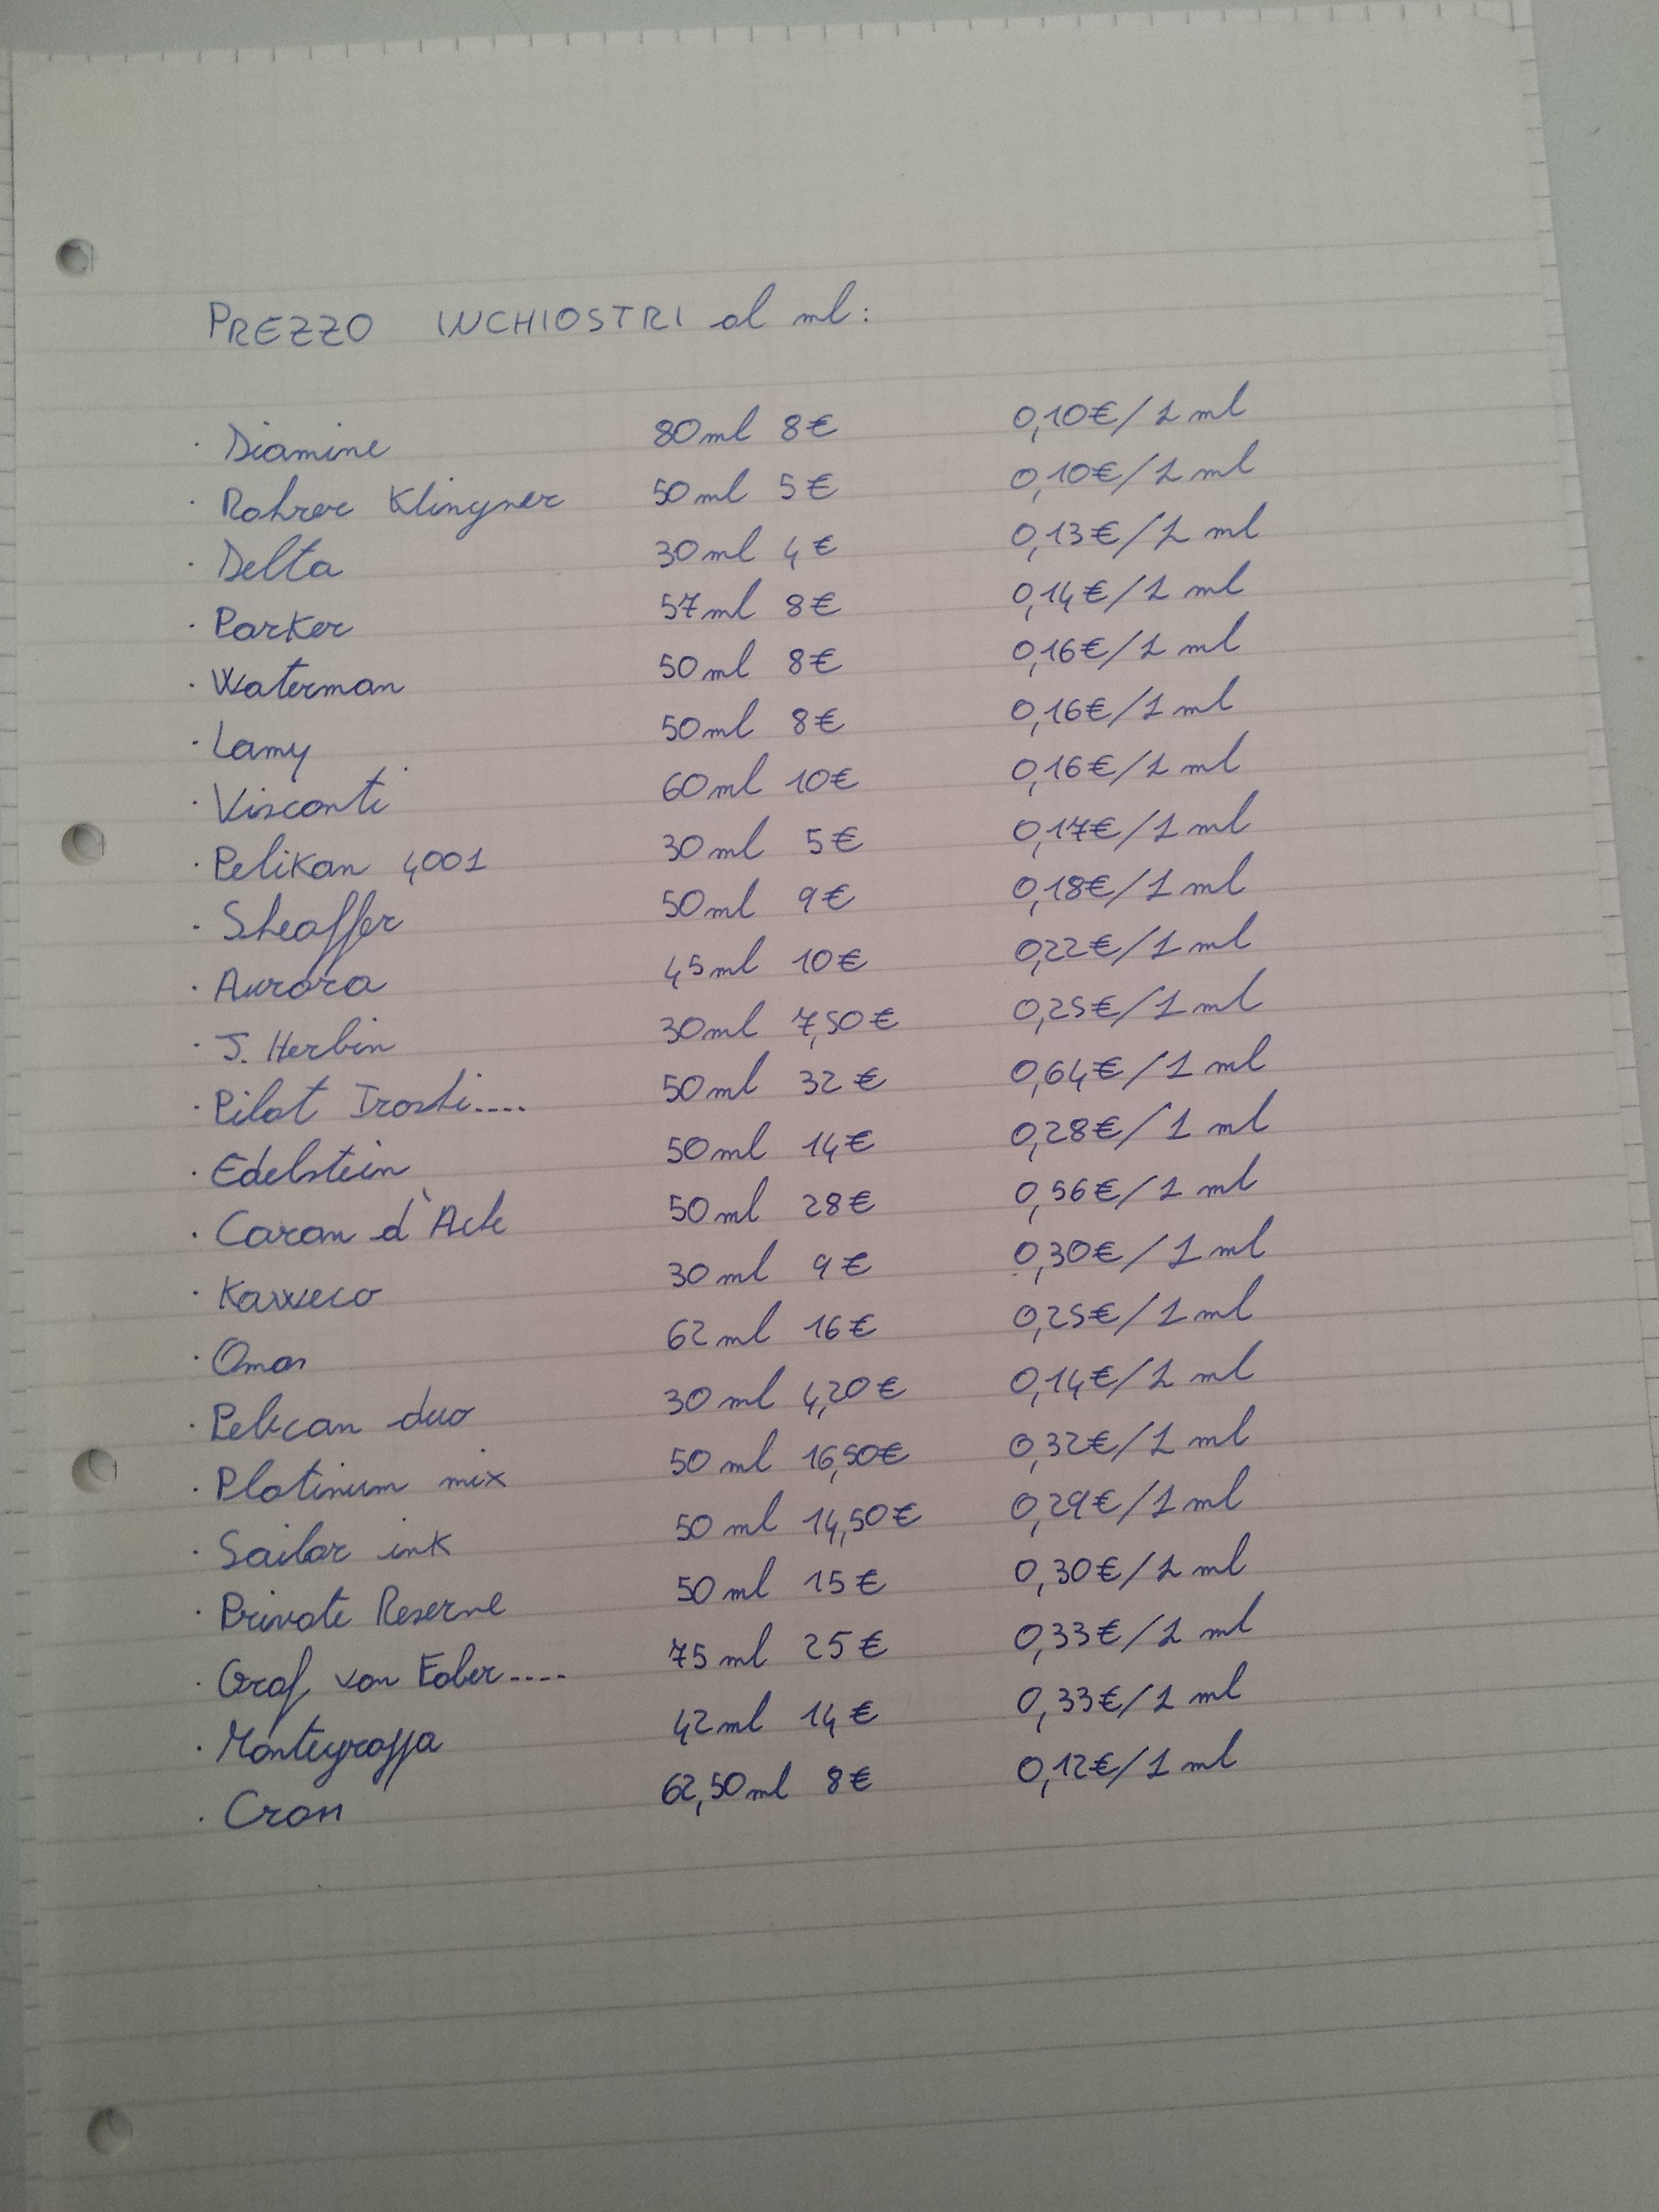 PREZZO INCHIOSTRI al ml:
· Diamine 80ml 8€ 0,10€/1 ml
· Rohrer Klingner 50ml 5€ 0,10€/1 ml
· Delta 30ml 4€ 0,13€/1 ml
· Parker 57ml 8€ 0,14€/1 ml
· Waterman 50ml 8€ 0,16€/1 ml
· Lamy 50ml 8€ 0,16€/1 ml
· Visconti 60ml 10€ 0,16€/1 ml
· Pelikan 4001 30ml 5€ 0,17€/1 ml
· Sheaffer 50ml 9€ 0,18€/1 ml
· Aurora 45ml 10€ 0,22€/1 ml
· J. Herbin 30ml 7,50€ 0,25€/1 ml
· Pilot Iroshi.... 50ml 32€ 0,64€/1 ml
· Edelstein 50ml 14€ 0,28€/1 ml
· Caran d'Ache 50ml 28€ 0,56€/1 ml
· Kaweco 30ml 9€ 0,30€/1 ml
· Omas 62ml 16€ 0,25€/1 ml
· Pelican duo 30ml 4,20€ 0,14€/1 ml
· Platinum mix 50 ml 16,50€ 0,32€/1 ml
· Sailor ink 50 ml 14,50€ 0,29€/1 ml
· Private Reserve 50ml 15€ 0,30€/1 ml
· Graf von Faber.... 75ml 25€ 0,33€/1 ml
· Montegrappa 42ml 14€ 0,33€/1 ml
· Cross 62,50ml 8€ 0,12€/1 ml